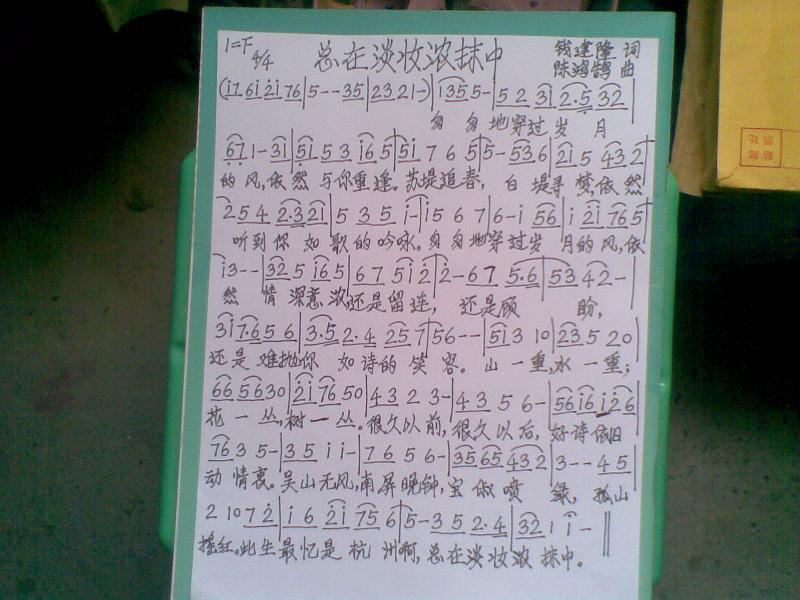 1=F 4/4 总在淡妆浓抹中 钱建隆 词
陈鸿鹄 曲
(i7 6i 2i 76|5--35|23 21-)|135 5-|5 2 31 2·5 32|
匆 匆 地穿过 岁 月
67 1-31|51 5 3 i6 5|51 7 6 5|5-53 6|21 5 43 2|
的 风,依 然 与你重逢。苏堤追春, 白 堤寻 梦,依 然
2 5 4 2·3 21|5 3 5 i-|i5 6 7|6-i 56|i 2i 76 5|
听到你 如 歌的吟咏。匆 匆地穿过岁 月的风,依
i3--|32 5 i6 5|6 7 5i 2|2-6 7 5·6|53 42-|
然 情 深意 浓,还是留连, 还是顾 盼,
3i 7·6 5 6|3·5 2·4 25 7|56--|51 3 10|23 5 20|
还是难抛你 如诗的 笑 容。山 一重,水 一重;
66 56 30|2i 76 50|4 3 2 3-|4 3 5 6-|56 i6 i2 6|
花 一 丛,树一 丛。很久以前,很久以后,好诗依旧
76 3 5-|3 5 i i-|7 6 5 6-|35 65 43 2|3--4 5|
动 情夜。吴山无风,南屏晚钟,宝俶喷 绿,孤山
2 10 7 2|i 6 2i 75 6|5-3 5 2·4|32 1 i-‖
摇红。此生最忆是 杭 州啊,总在淡妆浓 抹中。